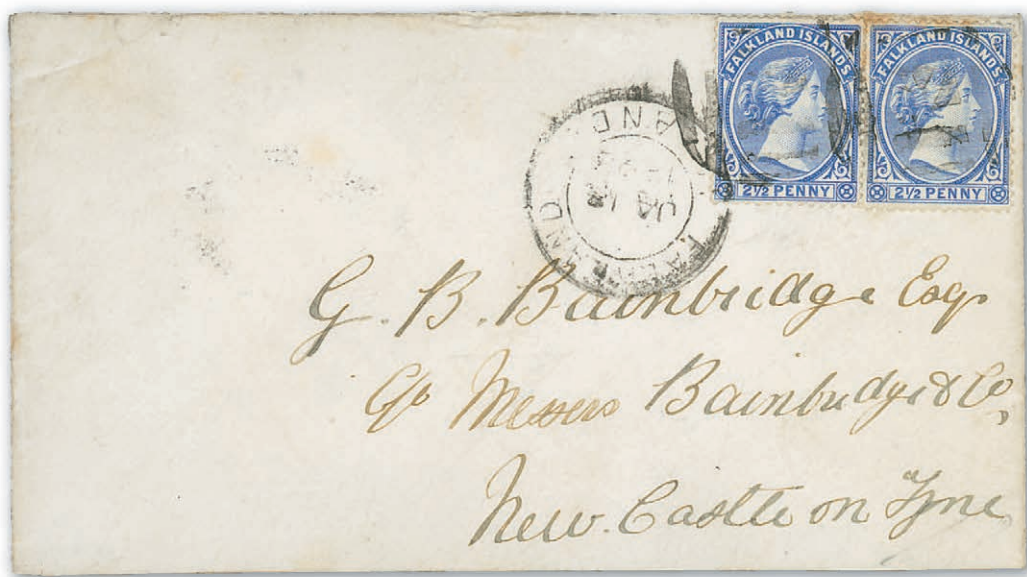 FALKLAND ISLANDS
2½ PENNY
FALKLAND ISLANDS
2½ PENNY
FALKLAND
JA 13
G. B. Bainbridge Esqr
c/o Messers Bainbridge & Co,
New. Castle on Tyne